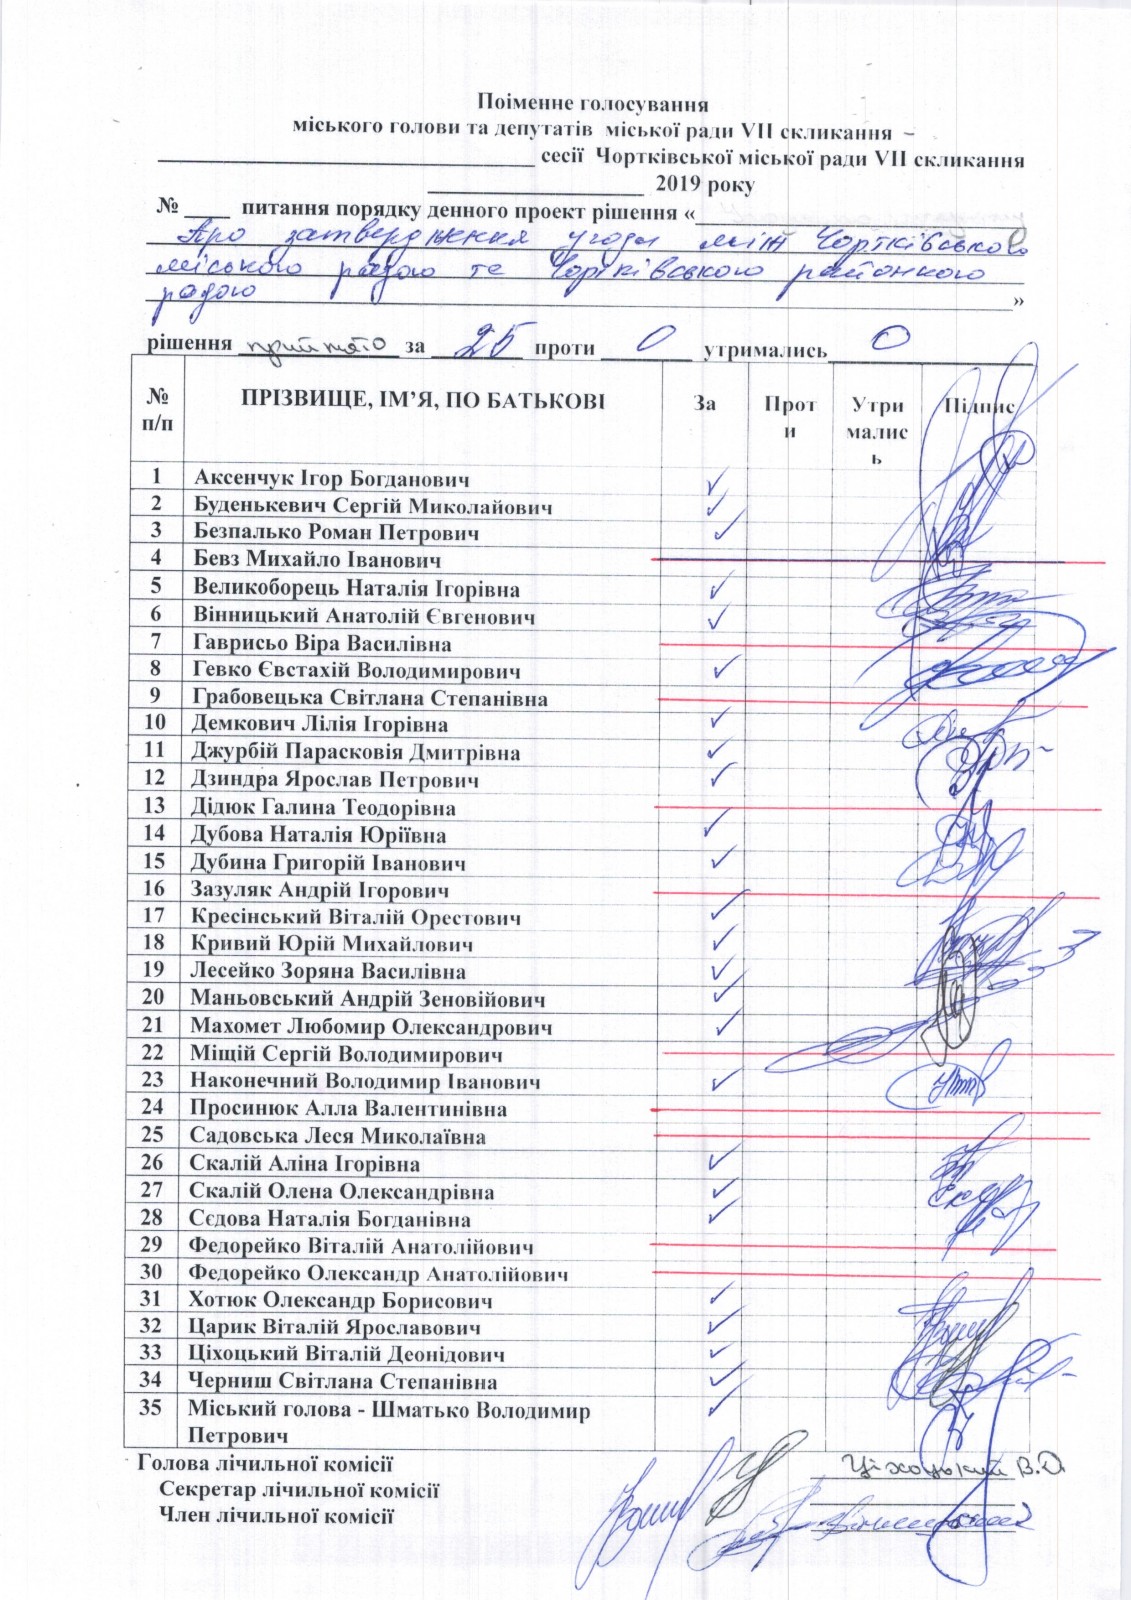 Поіменне голосування
міського голови та депутатів міської ради VII скликання –
сесії Чортківської міської ради VII скликання
2019 року
№ ____ питання порядку денного проект рішення «
Про затвердження угоди між Чортківською
міською радою та Чортківською районною
радою »
рішення прийнято за 25 проти 0 утримались 0
№ п/п ПРІЗВИЩЕ, ІМ’Я, ПО БАТЬКОВІ За Проти Утрималис ь Підпис
1 Аксенчук Ігор Богданович ✓
2 Буденькевич Сергій Миколайович ✓
3 Безпалько Роман Петрович ✓
4 Бевз Михайло Іванович
5 Великоборець Наталія Ігорівна ✓
6 Вінницький Анатолій Євгенович ✓
7 Гаврисьо Віра Василівна
8 Гевко Євстахій Володимирович ✓
9 Грабовецька Світлана Степанівна
10 Демкович Лілія Ігорівна ✓
11 Джурбій Парасковія Дмитрівна ✓
12 Дзиндра Ярослав Петрович ✓
13 Дідюк Галина Теодорівна
14 Дубова Наталія Юріївна ✓
15 Дубина Григорій Іванович ✓
16 Зазуляк Андрій Ігорович
17 Кресінський Віталій Орестович ✓
18 Кривий Юрій Михайлович ✓
19 Лесейко Зоряна Василівна ✓
20 Маньовський Андрій Зеновійович ✓
21 Махомет Любомир Олександрович ✓
22 Міщій Сергій Володимирович
23 Наконечний Володимир Іванович ✓
24 Просинюк Алла Валентинівна
25 Садовська Леся Миколаївна
26 Скалій Аліна Ігорівна ✓
27 Скалій Олена Олександрівна ✓
28 Сєдова Наталія Богданівна ✓
29 Федорейко Віталій Анатолійович
30 Федорейко Олександр Анатолійович
31 Хотюк Олександр Борисович ✓
32 Царик Віталій Ярославович ✓
33 Ціхоцький Віталій Деонідович ✓
34 Черниш Світлана Степанівна ✓
35 Міський голова - Шматько Володимир ✓
Петрович
Голова лічильної комісії Ціхоцький В.Л
Секретар лічильної комісії
Член лічильної комісії